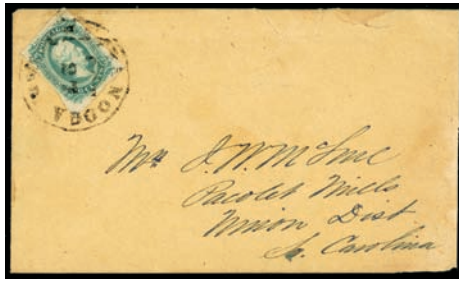 NOOGA
Mrs J. W. McLure
Pacolet Mills
Union Dist.
So. Carolina